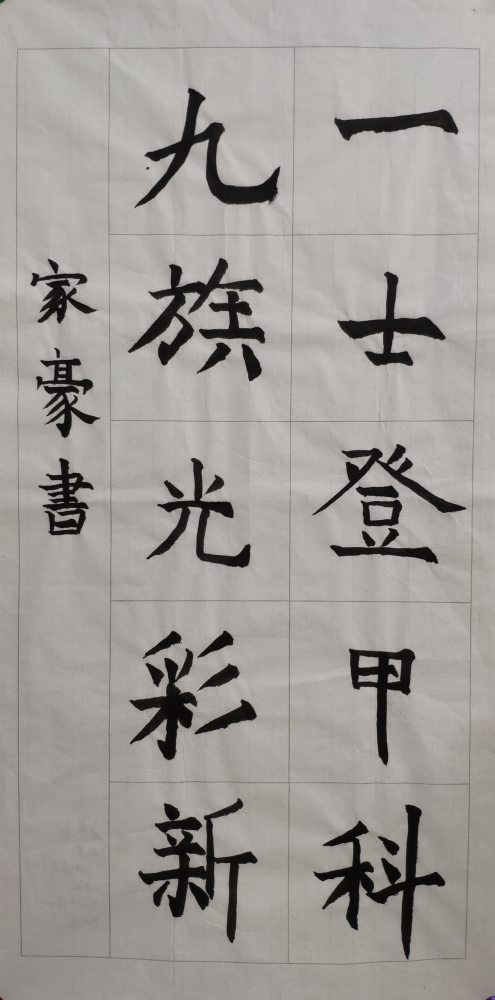 一士登甲科
九族光彩新
家豪書